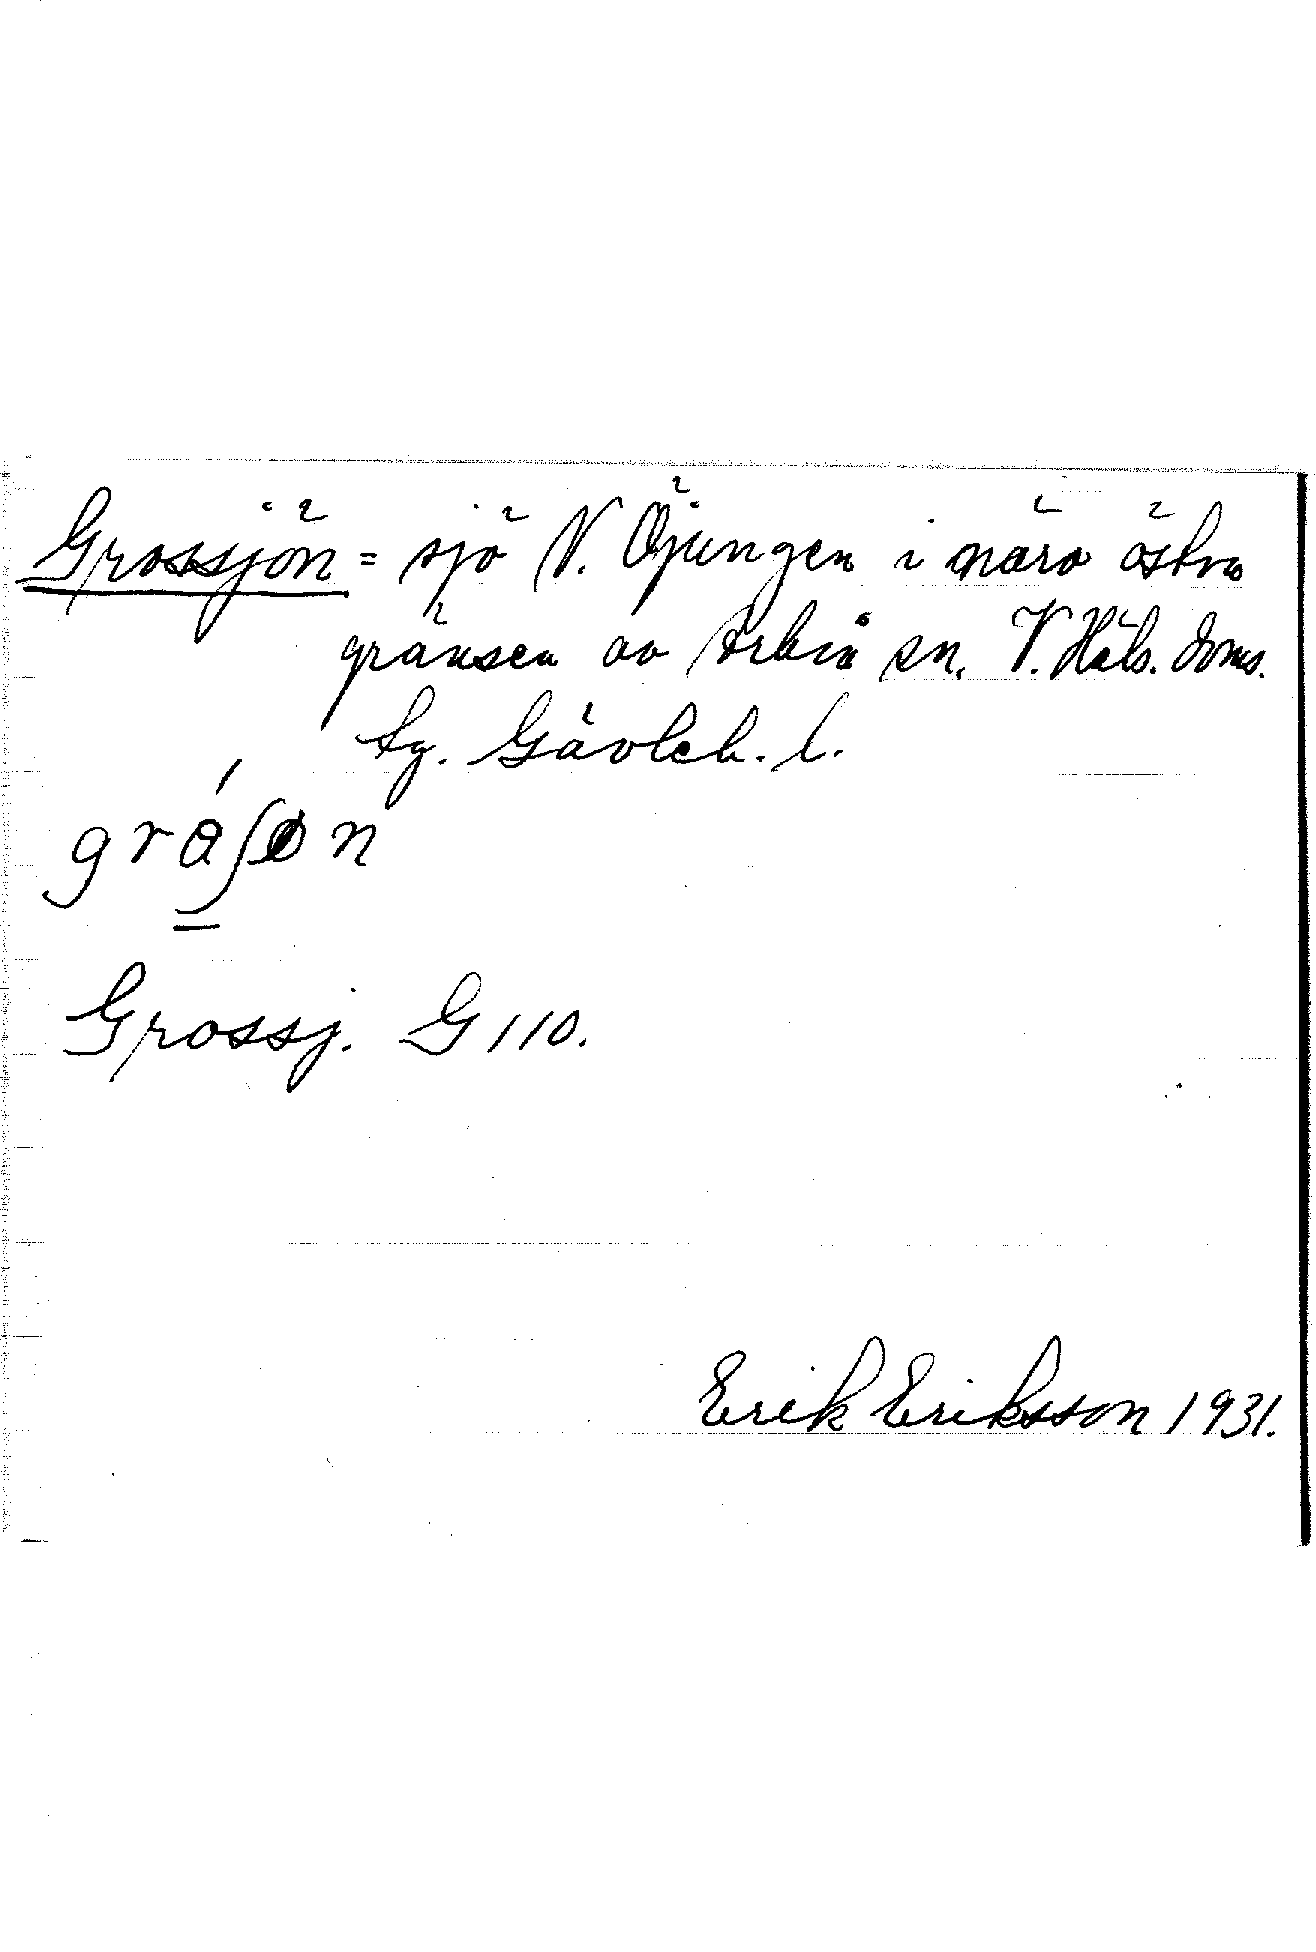 Grossjön = sjö V. Öjungen i nära östra
gränsen av Arbrå sn. V. Häls. doms.
sg. Gävleb. l.
Grossj. G 110.
Erik Eriksson 1931.